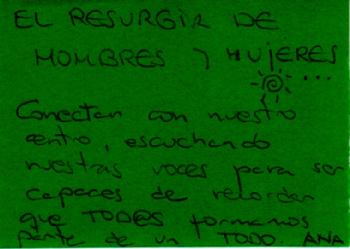 EL RESURGIR DE
HOMBRES Y MUJERES
...
Conectar con nuestro
centro, escuchando
nuestras voces para ser
capaces de recordar
que TOD@S formamos
parte de un TODO ANA